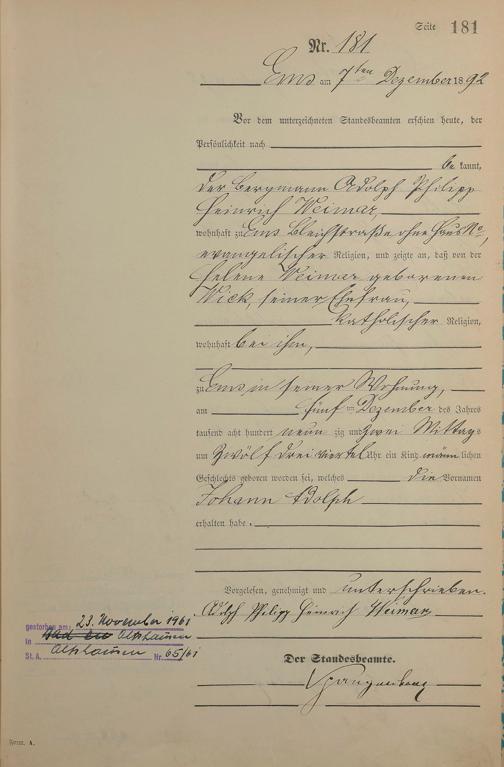 Seite 181
Nr. 181
Ems am 7ten Dezember 1892
Vor dem unterzeichneten Standesbeamten erschien heute, der
Persönlichkeit nach
be kannt,
der Bergmann Adolph Philipp
Heinrich Weimar,
wohnhaft zu Ems Bleichstraße ohne Haus No,
evangelischer Religion, und zeigte an, daß von der
Helene Weimar geborenen
Wick, seiner Ehefrau,
katholischer Religion,
wohnhaft bei ihm,
zu Ems in seiner Wohnung,
am fünften Dezember des Jahres
tausend acht hundert neun zig und zwei Mittags
um zwölf drei viertel Uhr ein Kind männlichen
Geschlechts geboren worden sei, welches die Vornamen
Johann Adolph
erhalten habe.
Vorgelesen, genehmigt und unterschrieben.
Adolph Philipp Heinrich Weimar
gestorben am: 23. November 1961
in Altshausen
St. A. Altshausen Nr. 65/61
Der Standesbeamte.
Form. A.